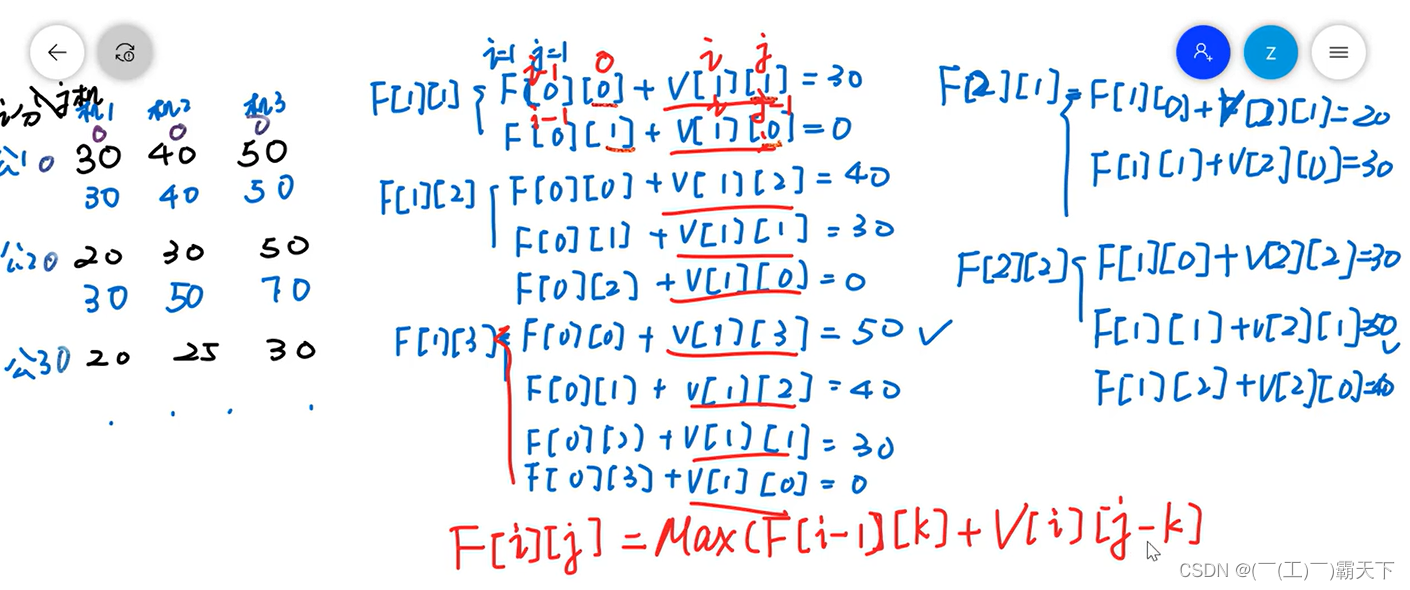 i公 j机
机1 机2 机3
0 0 0
公1 0 30 40 50
30 40 50
公2 0 20 30 50
30 50 70
公3 0 20 25 30
i=1 j=1
i-1 0 i j
F[1][1] F[0][0] + V[1][1] = 30
i-1 i j-1
F[0][1] + V[1][0] = 0
F[1][2] F[0][0] + V[1][2] = 40
F[0][1] + V[1][1] = 30
F[0][2] + V[1][0] = 0
F[1][3] F[0][0] + V[1][3] = 50 ✓
F[0][1] + V[1][2] = 40
F[0][2] + V[1][1] = 30
F[0][3] + V[1][0] = 0
F[2][1] = F[1][0] + V[2][1] = 20
F[1][1] + V[2][0] = 30
F[2][2] F[1][0] + V[2][2] = 30
F[1][1] + V[2][1] = 50 ✓
F[1][2] + V[2][0] = 40
F[i][j] = Max(F[i-1][k] + V[i][j-k]
Z
CSDN @(￣(工)￣)霸天下